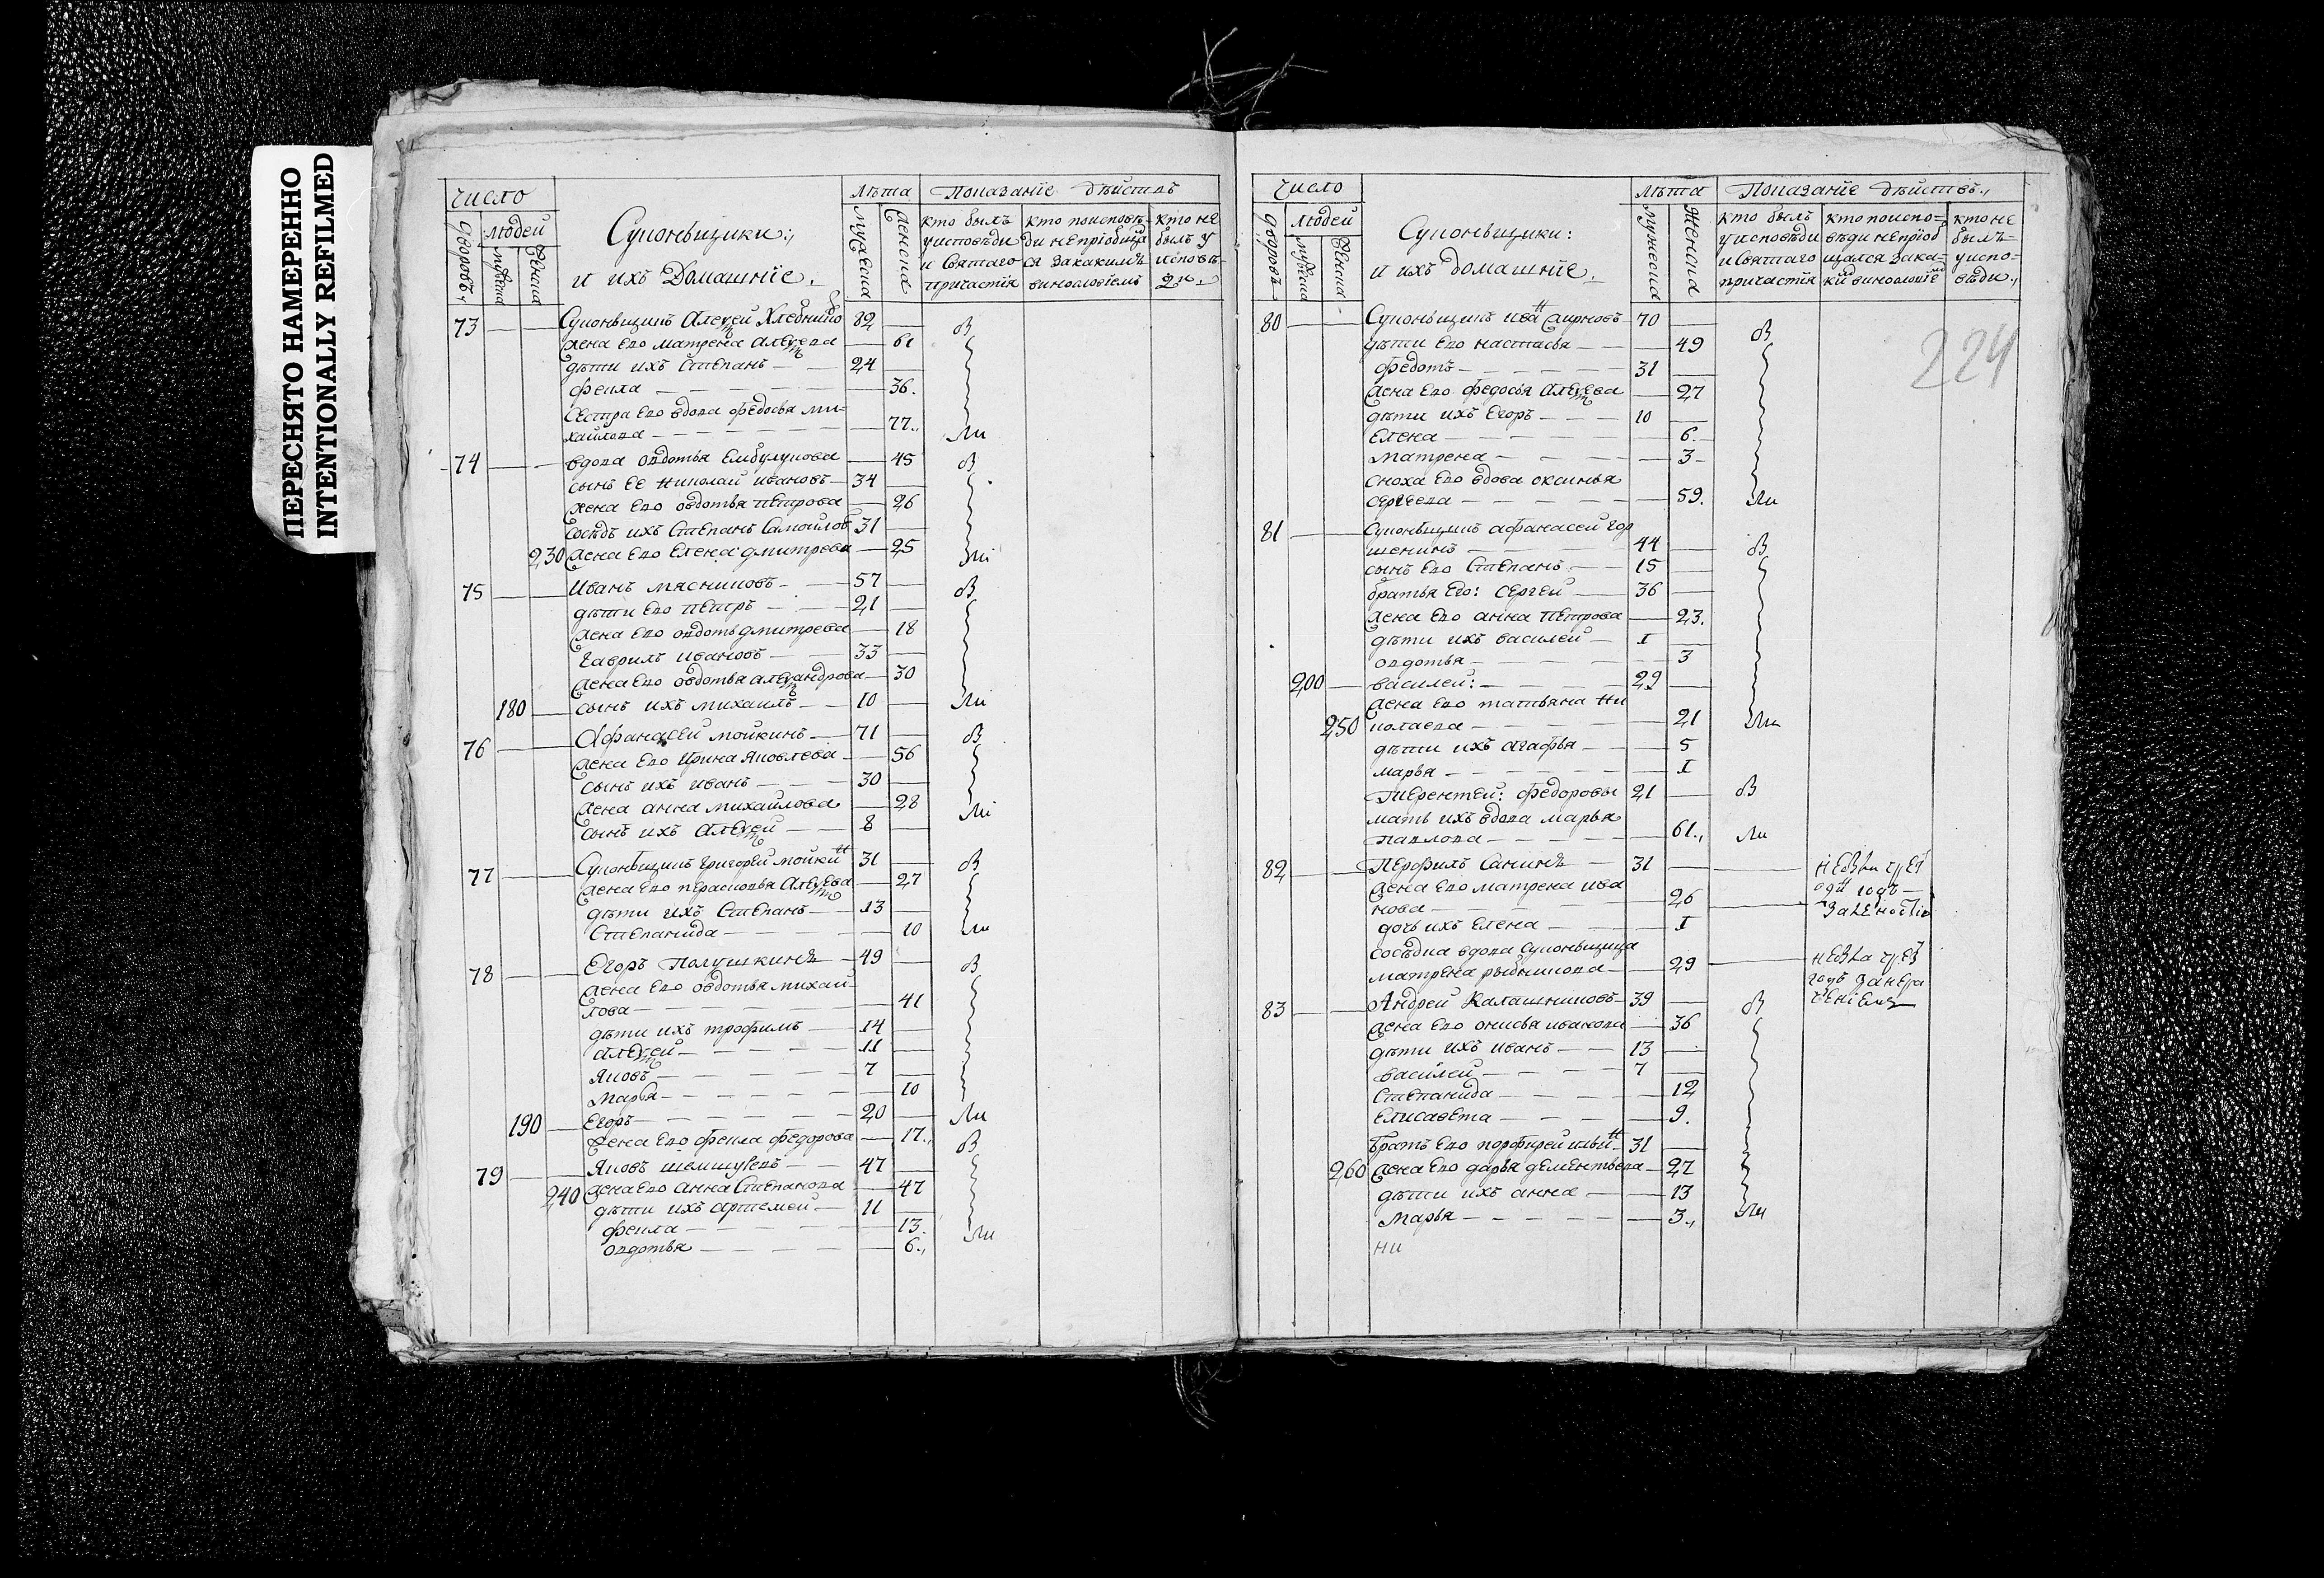 ПЕРЕСНЯТО НАМЕРЕННО
INTENTIONALLY REFILMED
число
людей
дворовъ
Мужеска
Женска
Суконьщики
и ихъ Домашніе
лѣта
мужеска
женска
Показаніе дѣиствъ
кто былъ
у исповѣди
и Святаго
причастія
кто исповѣ
ди не пріобщил
ся за какимъ
винословіемъ
кто не
былъ у
исповѣ
ди
73 Суконьщикъ Алеѯей Хлебнико 82 В
жена Его матрена Алеѯева 61
дѣти ихъ Степанъ 24
фекла 36.
сестра Его вдова федосья ми=
хаилова 77. ли
74 вдова овдотья 45 В
сынъ ее николай ивановъ 34
жена Его овдотья петрова 26
Сосѣдъ ихъ Степанъ Самойлов 31
230 жена Его Елена дмитрева 25 ли
75 Иванъ мясниковъ 57 В
дѣти Его петръ 21
жена Его овдоть дмитрева 18
гаврилъ ивановъ 33
жена Его овдотья алеѯандрова 30
180 сынъ ихъ михаилъ 10 ли
76 Афанасей мойкинъ 71 В
жена Его Ирина Яковлева 56
сынъ ихъ иванъ 30
жена анна михаилова 28 ли
сынъ ихъ Алеѯей 8
77 Суконьщикъ григорей мойкин 31 В
жена Его прасковья Алеѯева 27
дѣти ихъ Степанъ 13
Степанида 10 ли
78 Егоръ Полушкинъ 49 В
жена Его овдотья михаи=
лова 41
дѣти ихъ трофимъ 14
алеѯей 11
яковъ 7
Марья 10
190 Егоръ 20 ли
Жена Его фекла федорова 17. В
79 Яковъ 47
240 жена Его Анна Степанова 47
дѣти ихъ артемей 11
фекла 13. ли
овдотья 6.
224
число
людей
дворовъ
мужеска
Женска
Суконьщики:
и ихъ домашніе
лѣта
мужеска
Женска
Показаніе дѣиствъ
кто былъ
у исповѣди
и Святаго
причастія
кто испо=
вѣди не пріоб
щался за ка=
кимъ винословіем
кто не
былъ
у испо=
вѣди
80 Суконьщикъ иван Смирновъ 70 В
дѣти Его настасья 49
федотъ 31
жена Его федосья Алеѯева 27
дѣти ихъ Егоръ 10
Елена 6.
Матрена 3
сноха Его вдова оксинья
сергеева 59. ли
81 Суконьщикъ афанасей
шенинъ 44 В
сынъ Его Степанъ 15
братья Его: Сергей 36
жена Его анна Петрова 23.
дѣти ихъ василей I
овдотья 3
200 василей: 29
жена Его татьяна ни
250 колаева 21 ли
дѣти ихъ агафья 5
марья I
Терентей: федоровы 21 В
мать ихъ вдова марья
павлова 61. ли
82 Перфилъ Санинъ 31
жена Его матрена ива
нова 26
дочь ихъ Елена I
сосѣдка вдова Суконьщица
матрена рыбникова 29
83 Андрей Калашниковъ 39 В
жена Его онисья иванова 36
дѣти ихъ иванъ 13
василей 7
Степанида 12
Елисавета 9.
братъ Его порфирей ильин 31
260 жена Его дарья дементьева 27
дѣти ихъ анна 13
Марья 3. ли
ни